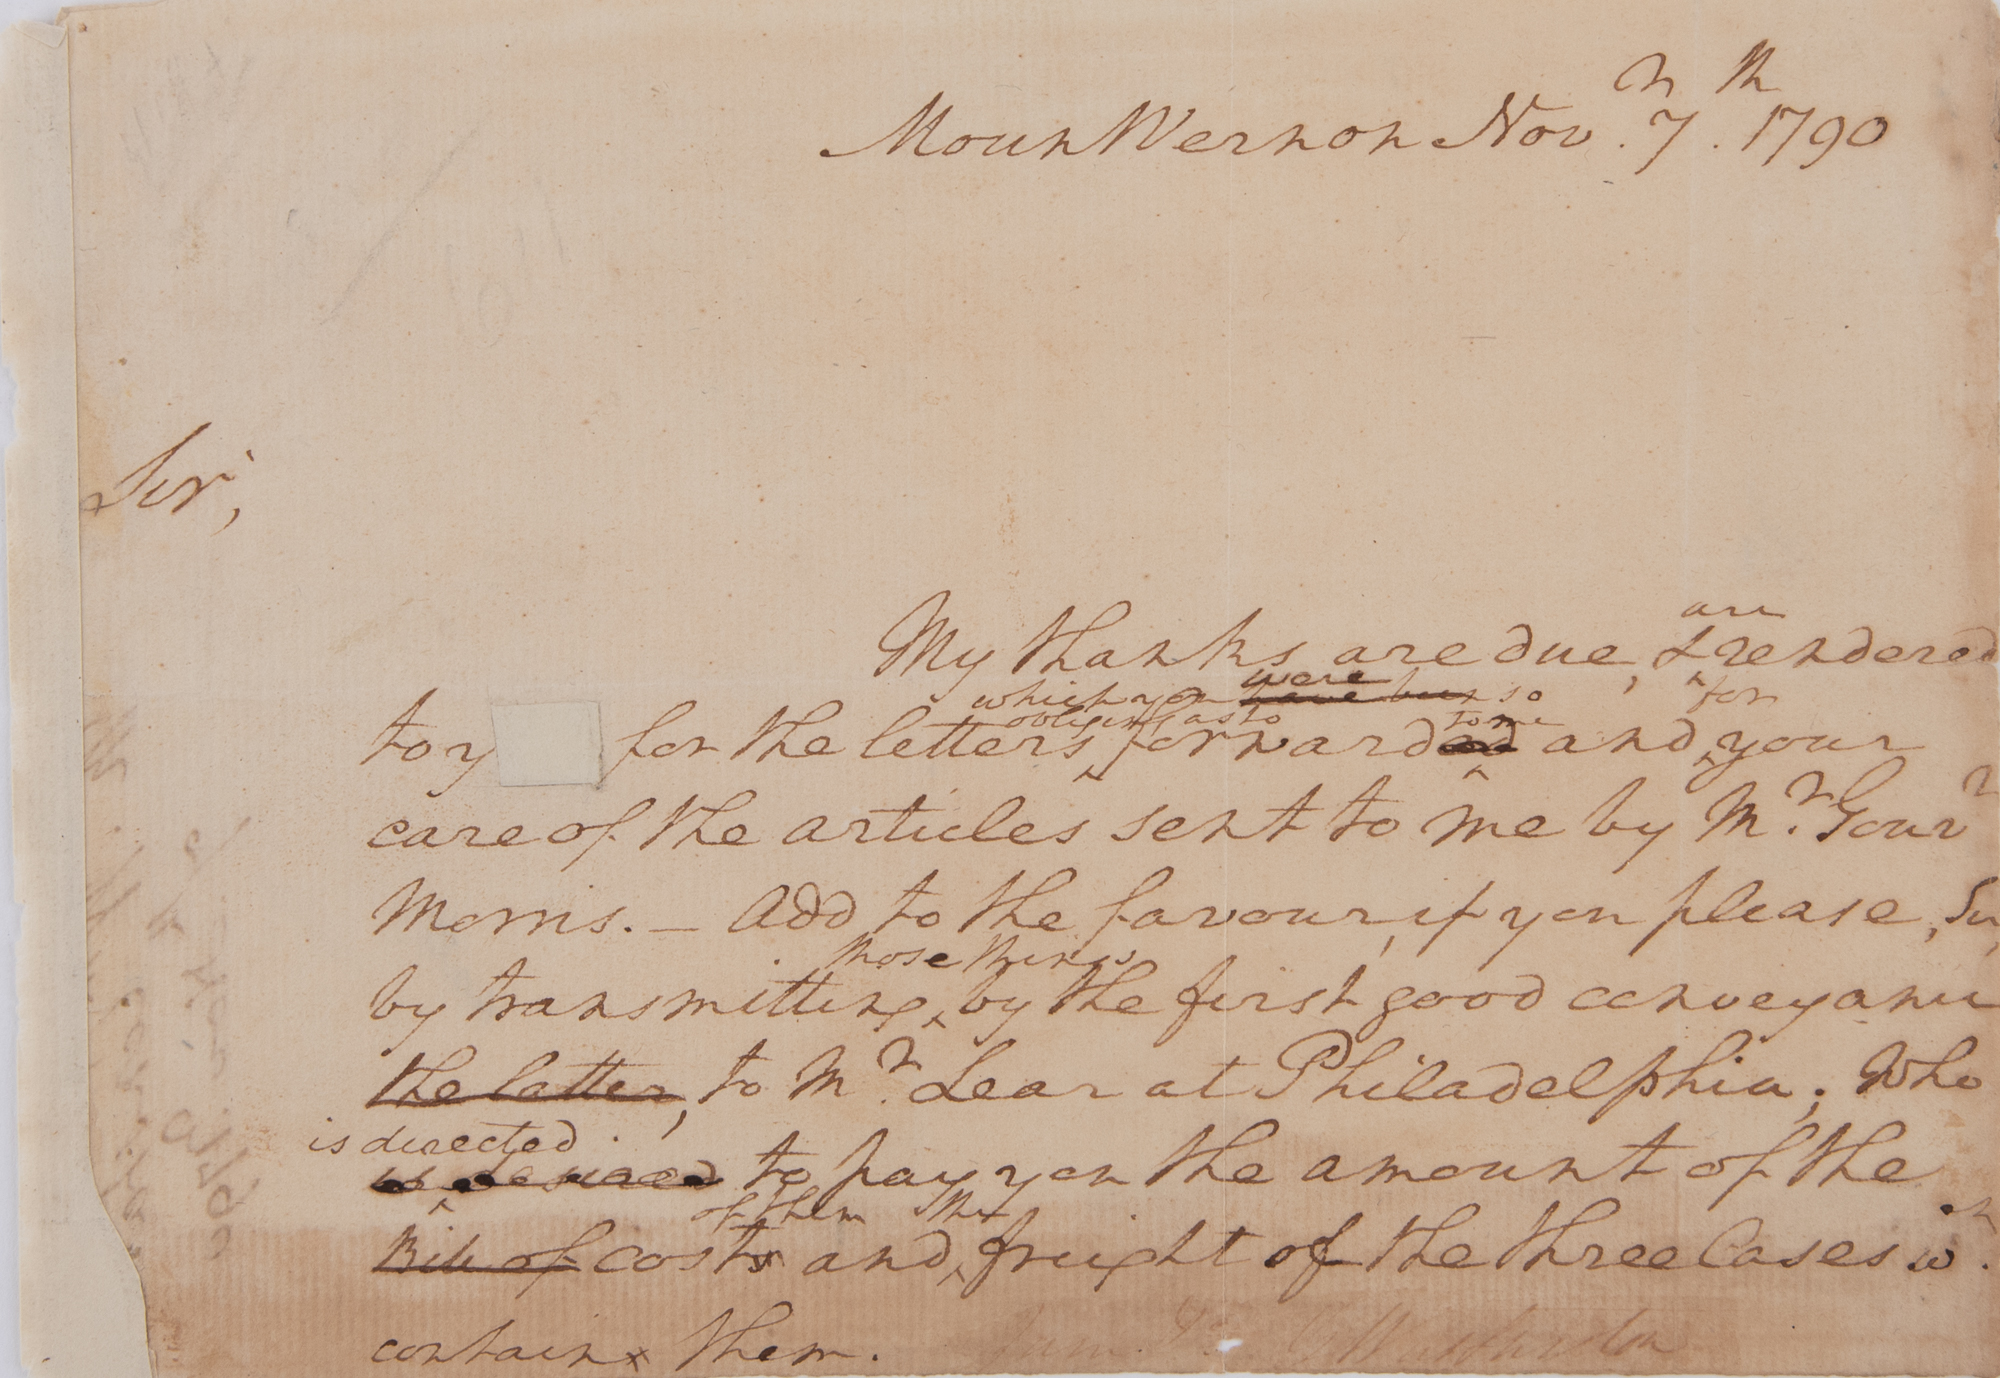 Mount Vernon Novr. 7th. 1790
Sir,
are
My thanks are due, & rendered
which you were have been so for
obliging as to to me
to y for the letters forwarded and your
care of the articles sent to me by Mr. Gouvr
Morris. — Add to the favour, if you please, Sir,
those things
by transmitting by the first good conveyance
the latter, to Mr. Lear at Philadelphia; Who
is directed
is desired to pay you the amount of the
of them the
Bill of costs and freight of the three Cases wh.
contain them.